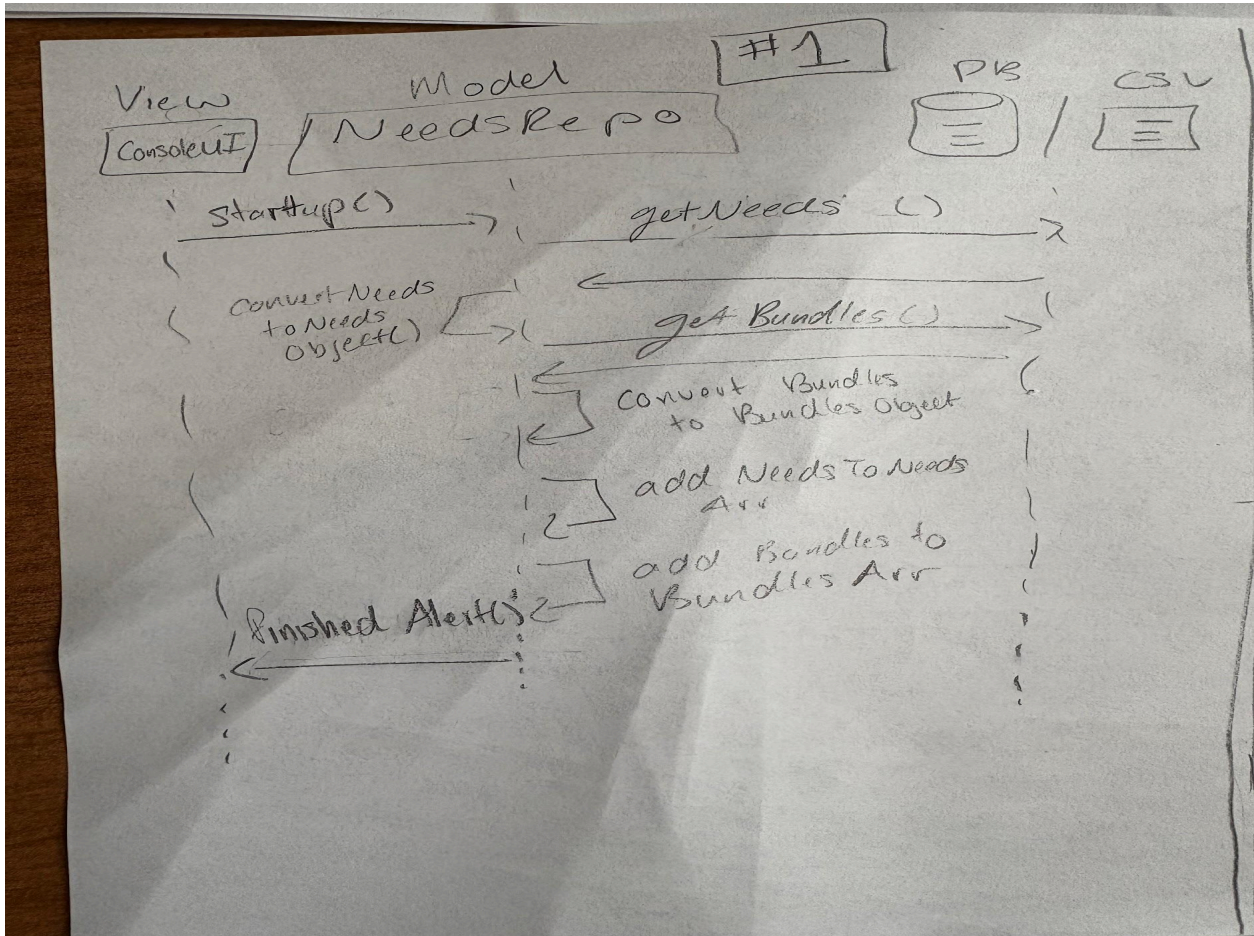 #1
View
Model
DB
CSV
ConsoleUI
NeedsRepo
/
startup()
getNeeds ()
convert Needs
to Needs
Object()
get Bundles()
convert Bundles
to Bundles Object
add Needs To Needs
Arr
add Bundles to
Bundles Arr
finished Alert()